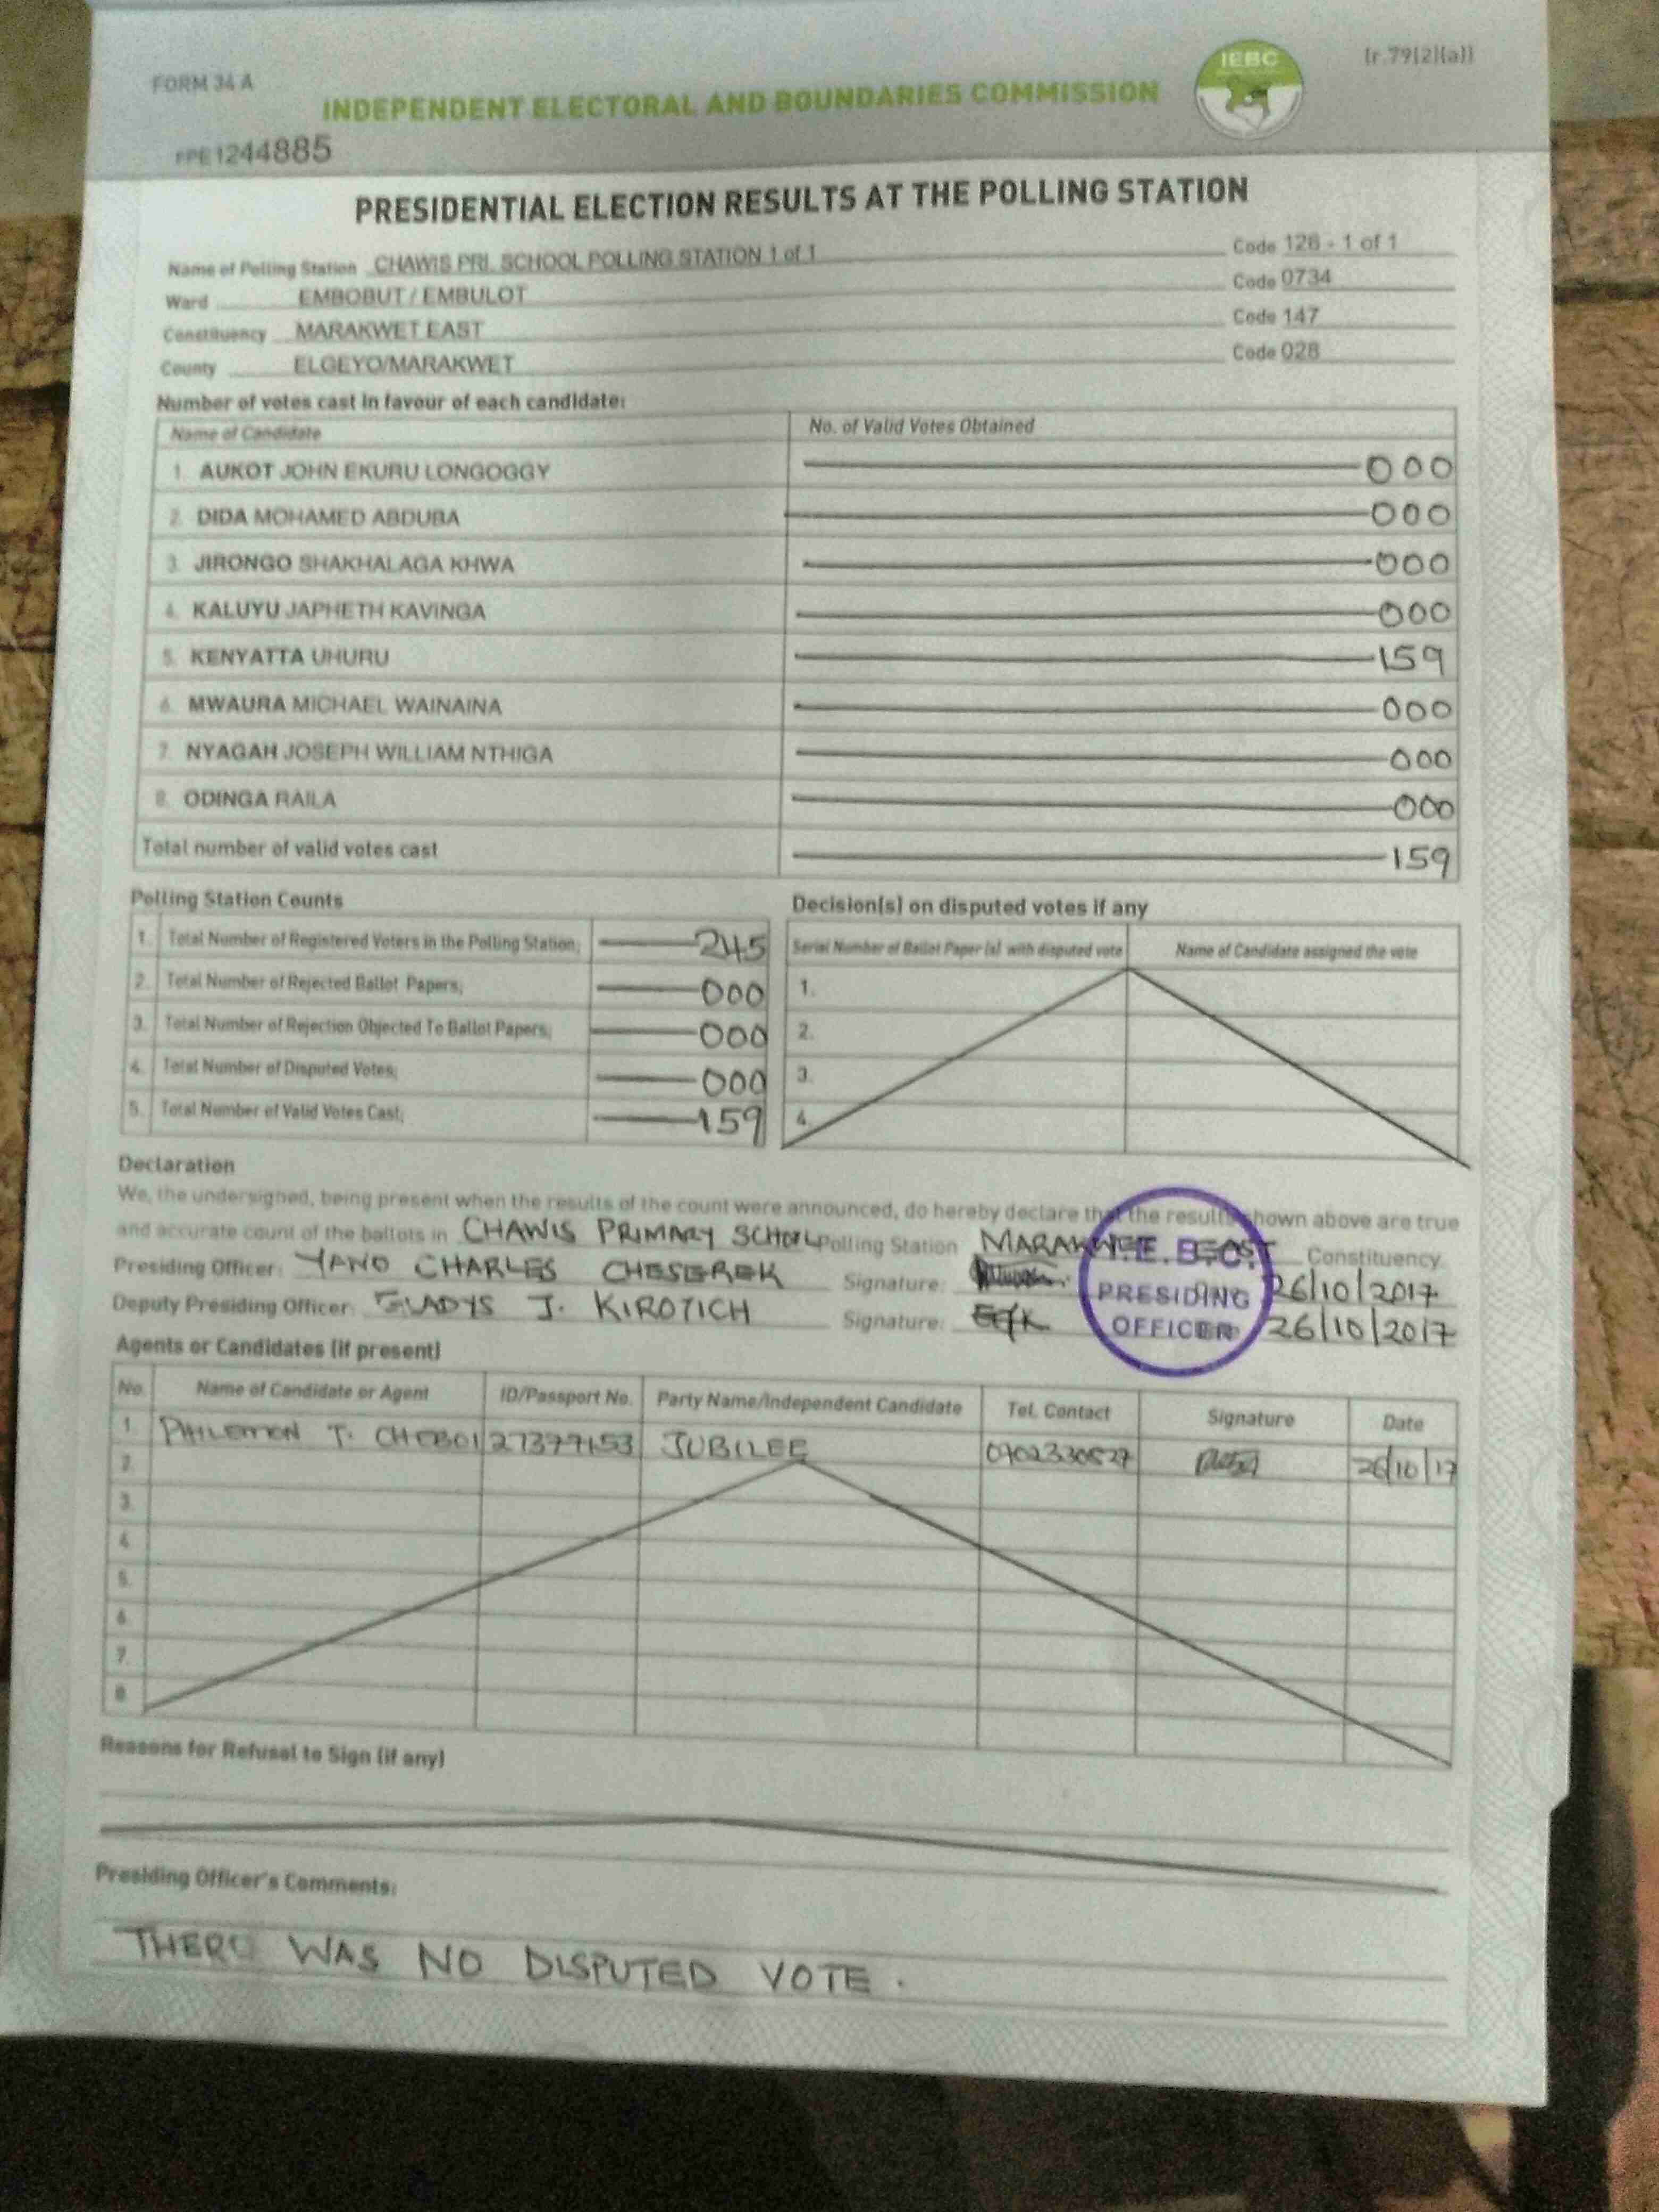 FORM 34 A
(r.79(2)(a))
IEBC
INDEPENDENT ELECTORAL AND BOUNDARIES COMMISSION
FPE1244885
PRESIDENTIAL ELECTION RESULTS AT THE POLLING STATION
Name of Polling Station CHAWIS PRI. SCHOOL POLLING STATION 1 of 1 Code 126 - 1 of 1
Ward EMBOBUT / EMBULOT Code 0734
Constituency MARAKWET EAST Code 147
County ELGEYO/MARAKWET Code 028
Number of votes cast in favour of each candidate:
Name of Candidate No. of Valid Votes Obtained
1. AUKOT JOHN EKURU LONGOGGY 000
2. DIDA MOHAMED ABDUBA 000
3. JIRONGO SHAKHALAGA KHWA 000
4. KALUYU JAPHETH KAVINGA 000
5. KENYATTA UHURU 159
6. MWAURA MICHAEL WAINAINA 000
7. NYAGAH JOSEPH WILLIAM NTHIGA 000
8. ODINGA RAILA 000
Total number of valid votes cast 159
Polling Station Counts
1. Total Number of Registered Voters in the Polling Station; 245
2. Total Number of Rejected Ballot Papers; 000
3. Total Number of Rejection Objected To Ballot Papers; 000
4. Total Number of Disputed Votes; 000
5. Total Number of Valid Votes Cast; 159
Decision(s) on disputed votes if any
Serial Number of Ballot Paper (s) with disputed vote Name of Candidate assigned the vote
1.
2.
3.
4.
Declaration
We, the undersigned, being present when the results of the count were announced, do hereby declare that the results shown above are true
and accurate count of the ballots in CHAWIS PRIMARY SCHOOL Polling Station MARAKWET EAST Constituency
Presiding Officer: YANO CHARLES CHESEREK Signature: 26/10/2017
Deputy Presiding Officer: GLADYS J. KIROTICH Signature: 26/10/2017
I.E.B.C.
PRESIDING
OFFICER
Agents or Candidates (if present)
No. Name of Candidate or Agent ID/Passport No. Party Name/Independent Candidate Tel. Contact Signature Date
1. PHILEMON T. CHEBOI JUBILEE 0702330527 26/10/17
2.
3.
4.
5.
6.
7.
8.
Reasons for Refusal to Sign (if any)
Presiding Officer's Comments:
THERE WAS NO DISPUTED VOTE.